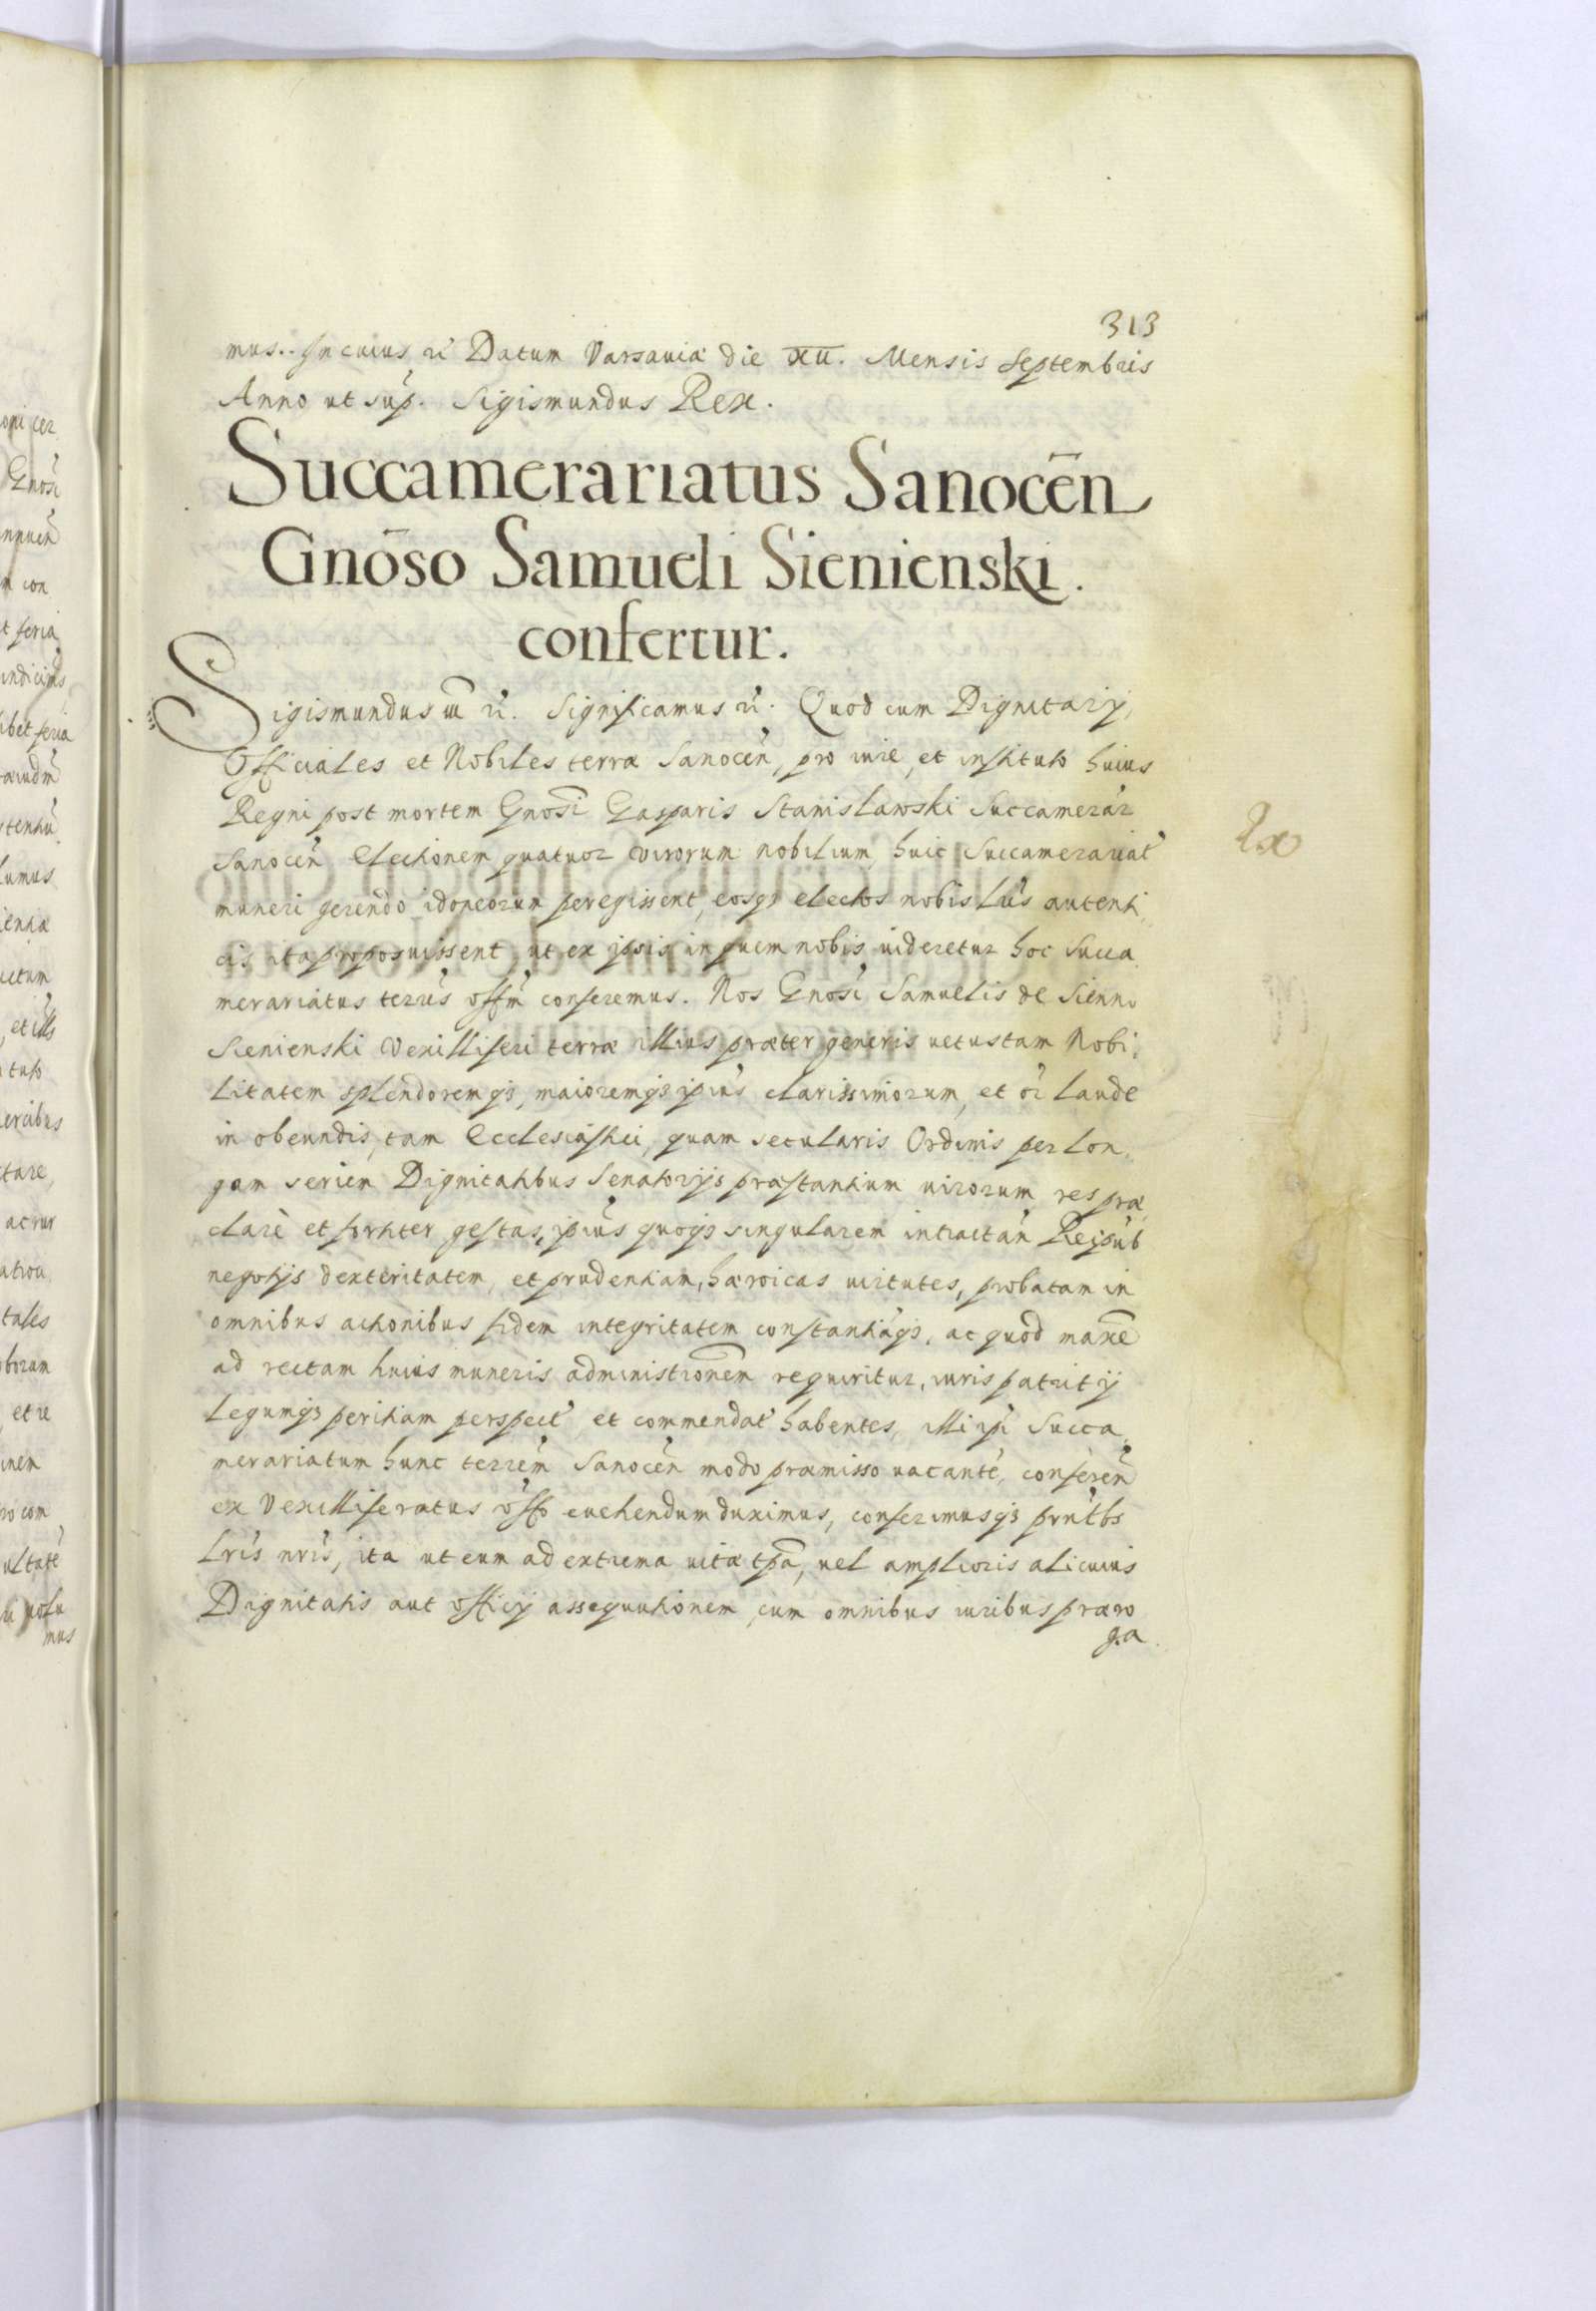 313
mus.. In cuius etc Datum Varsaviæ die XII. Mensis Septembris
Anno ut sup. Sigismundus Rex.
Succamerariatus Sanocēn
Gnōso Samueli Sienienski.
confertur.
Sigismundus III etc. Significamus etc. Quod cum Dignitarij,
Officiales et Nobiles terræ Sanocen, pro iure, et instituto huius
Regni post mortem Gnosi Gasparis Stanislawski Succamerar
Sanocen Electionem quatuor virorum nobilium huic Succamerariat
muneri gerendo idoneorum peregissent, eosq3 electos nobis Lris autenti
cis ita proposuissent, ut ex ipsis in quem nobis uideretur hoc Succa
merariatus terris offm conferemus. Nos Gnosi Samuelis de Sienno
Sienienski Vexilliferi terræ illius præter generis uetustam Nobi,
litatem splendoremq3, maioremq3 ipius clarissimorum, et oi laude
in obeundis, tam Ecclesiastici, quam secularis Ordinis per lon,
gam seriem Dignitatibus Senatorijs præstantium uirorum res præ
clarè et fortiter gestas, ipius quoq3 singularem in tractan Reipub
negotijs dexteritatem, et prudentiam, hæroicas uirtutes, probatam in
omnibus actionibus fidem integritatem constantiaq3, ac quod maxē
ad rectam huius muneris administronem requiritur, iuris patrij
Legumq3 peritiam perspect et commendat habentes, illi ipi Succa,
merariatum hunc terrem Sanocen modo præmisso uacante, conferen
ex Vexilliferatus offo euehendum duximus, conferimusq3 prntbs
Lris nris, ita ut eum ad extrema uitæ tpa, uel amplioris alicuius
Dignitatis aut officij assequutionem, cum omnibus iuribus præro
ga